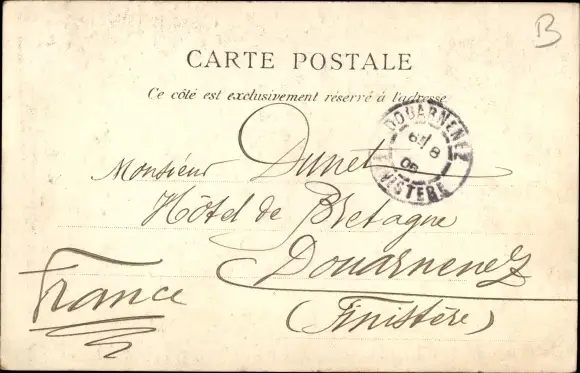 B
CARTE POSTALE
Ce côté est exclusivement réservé à l'adresse
DOUARNENEZ
8
06
FINISTERE
Monsieur Dunet
Hôtel de Bretagne
Douarnenez
France
(Finistère)